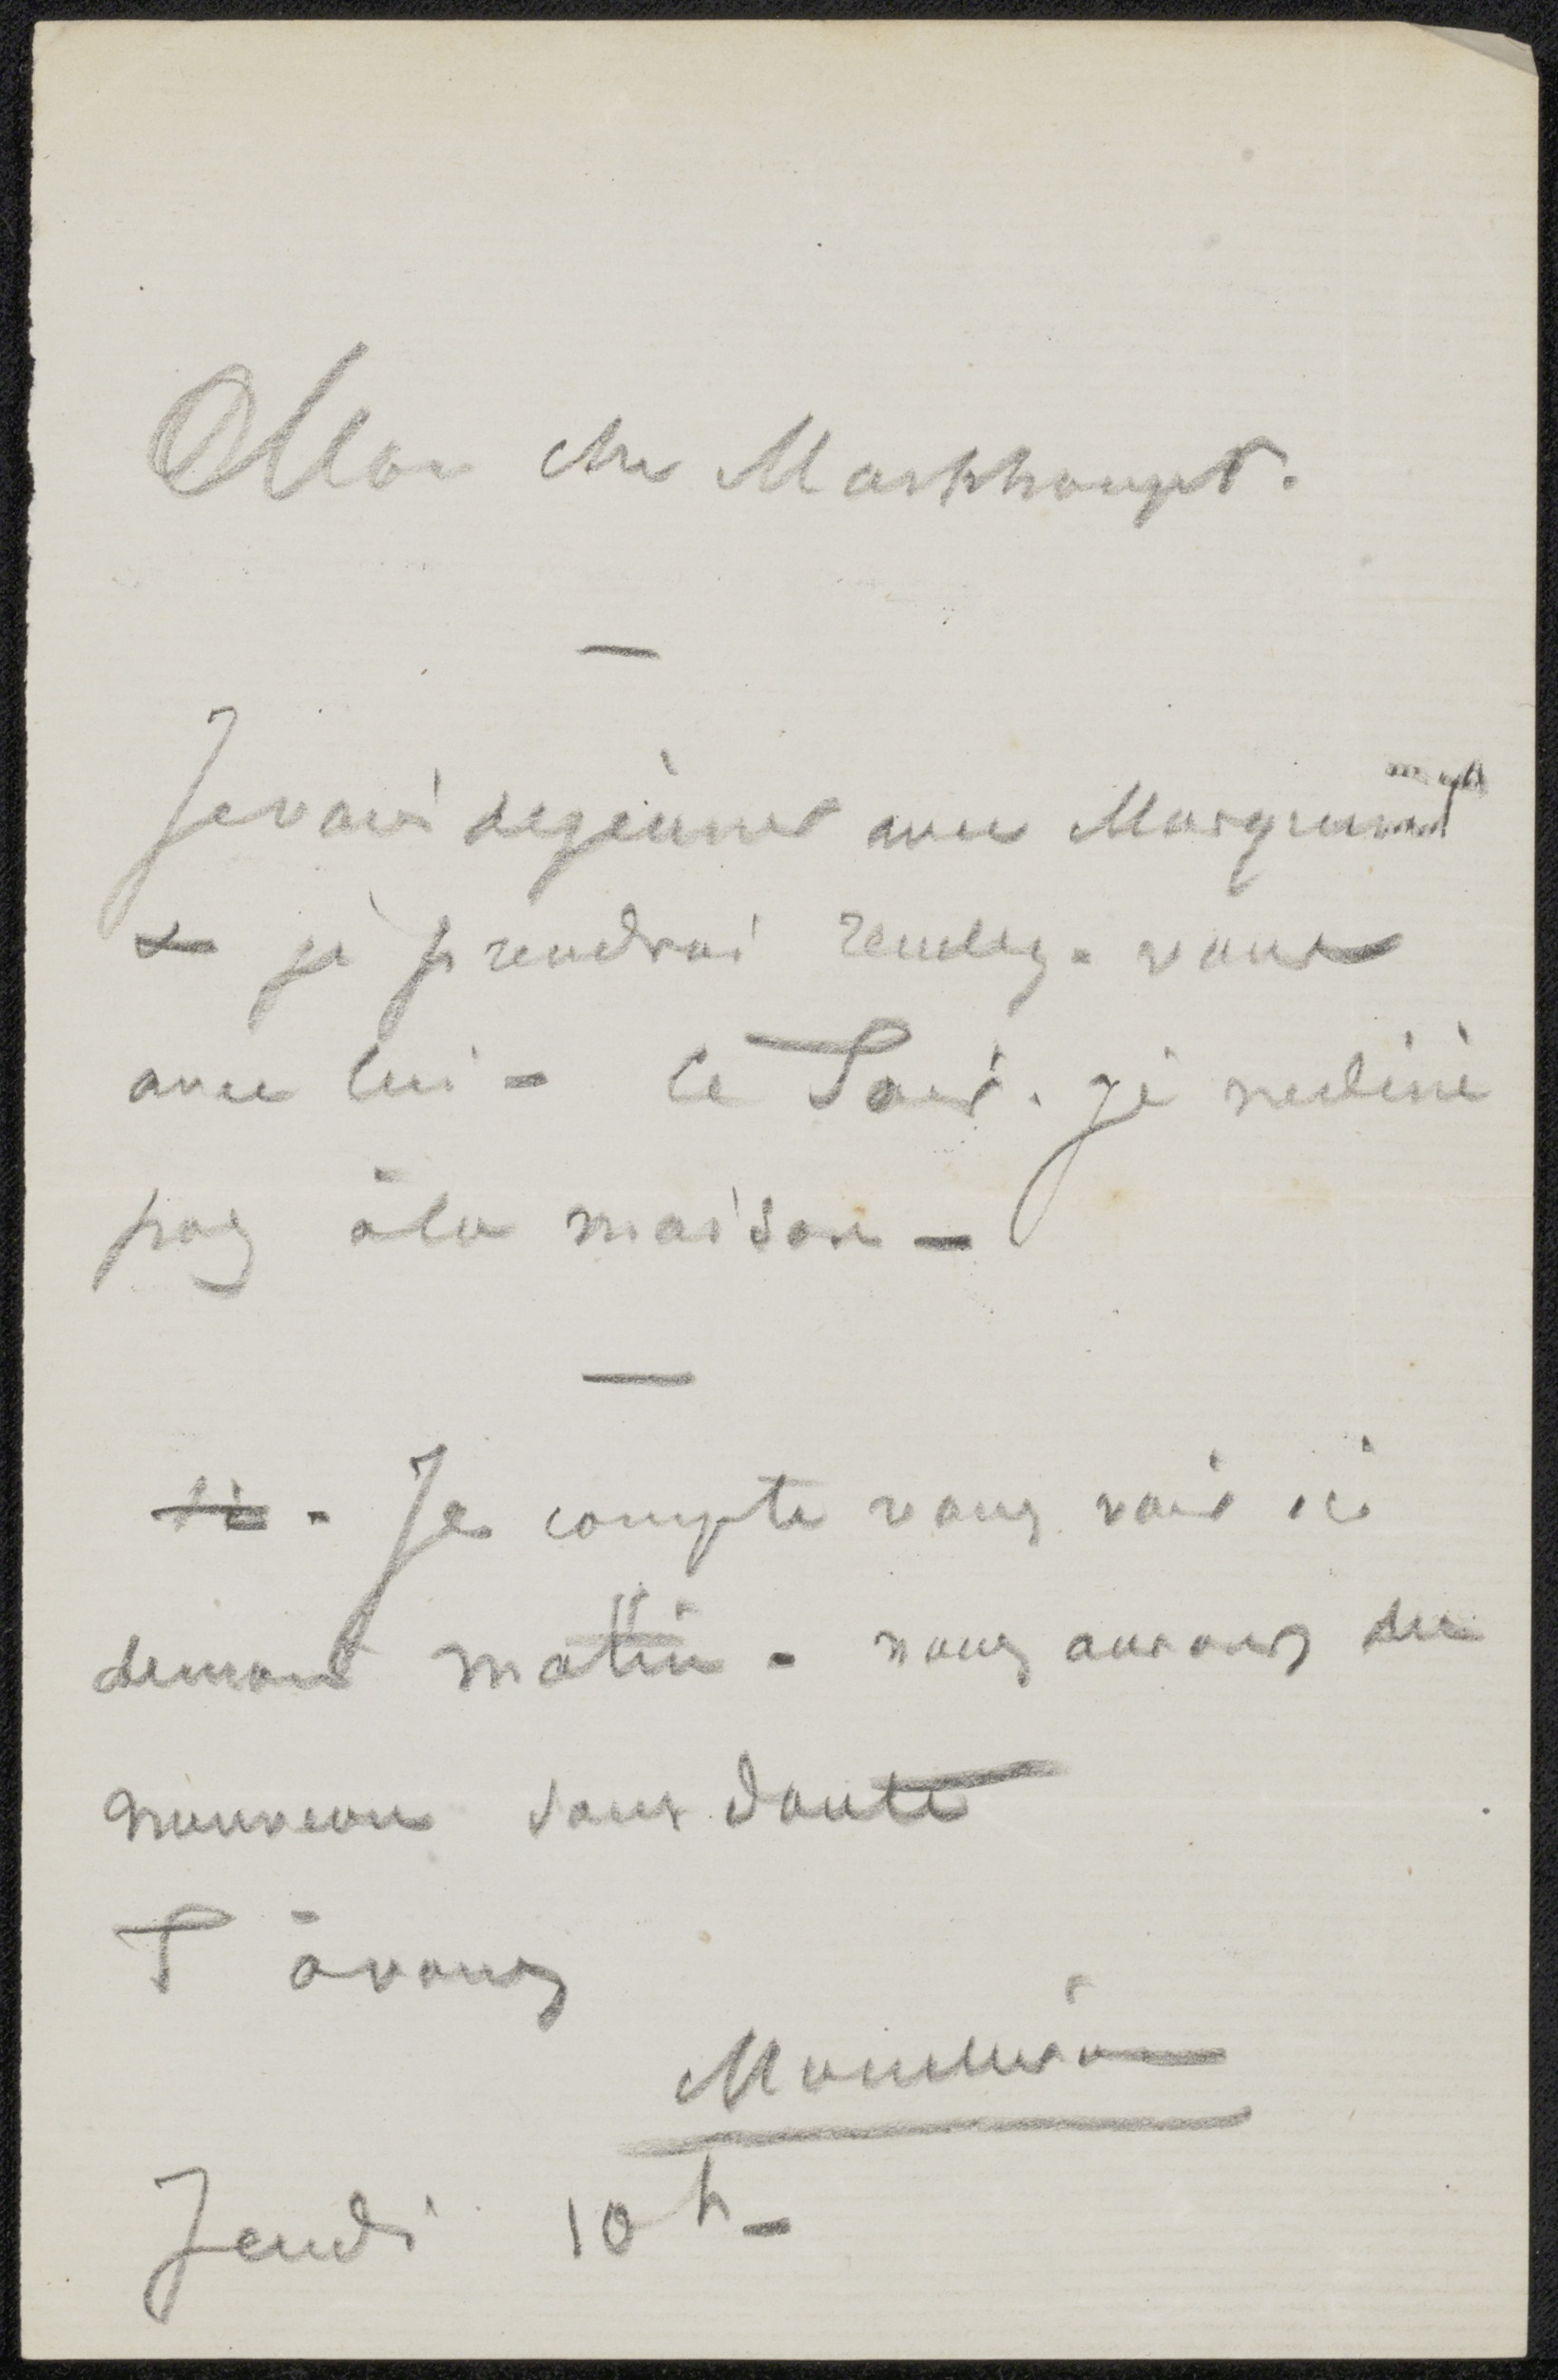 Mon cher Markhoupt.
Je vais dejeuner avec
& je prendrai rendez-vous
avec lui - le Soir. je ne dine
pas à la maison -
si - Je compte vous voir ici
demain matin - nous aurons du
nouveau sans doute
T à vous
Jeudi 10h -